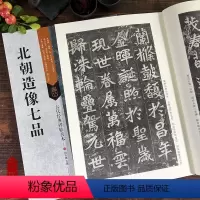 北朝造像七品
蘭條鼓馥於昌年
金暉誕照於聖歲
現世眷屬萬福雲
歸洙輪疊駕元世
粉象优品